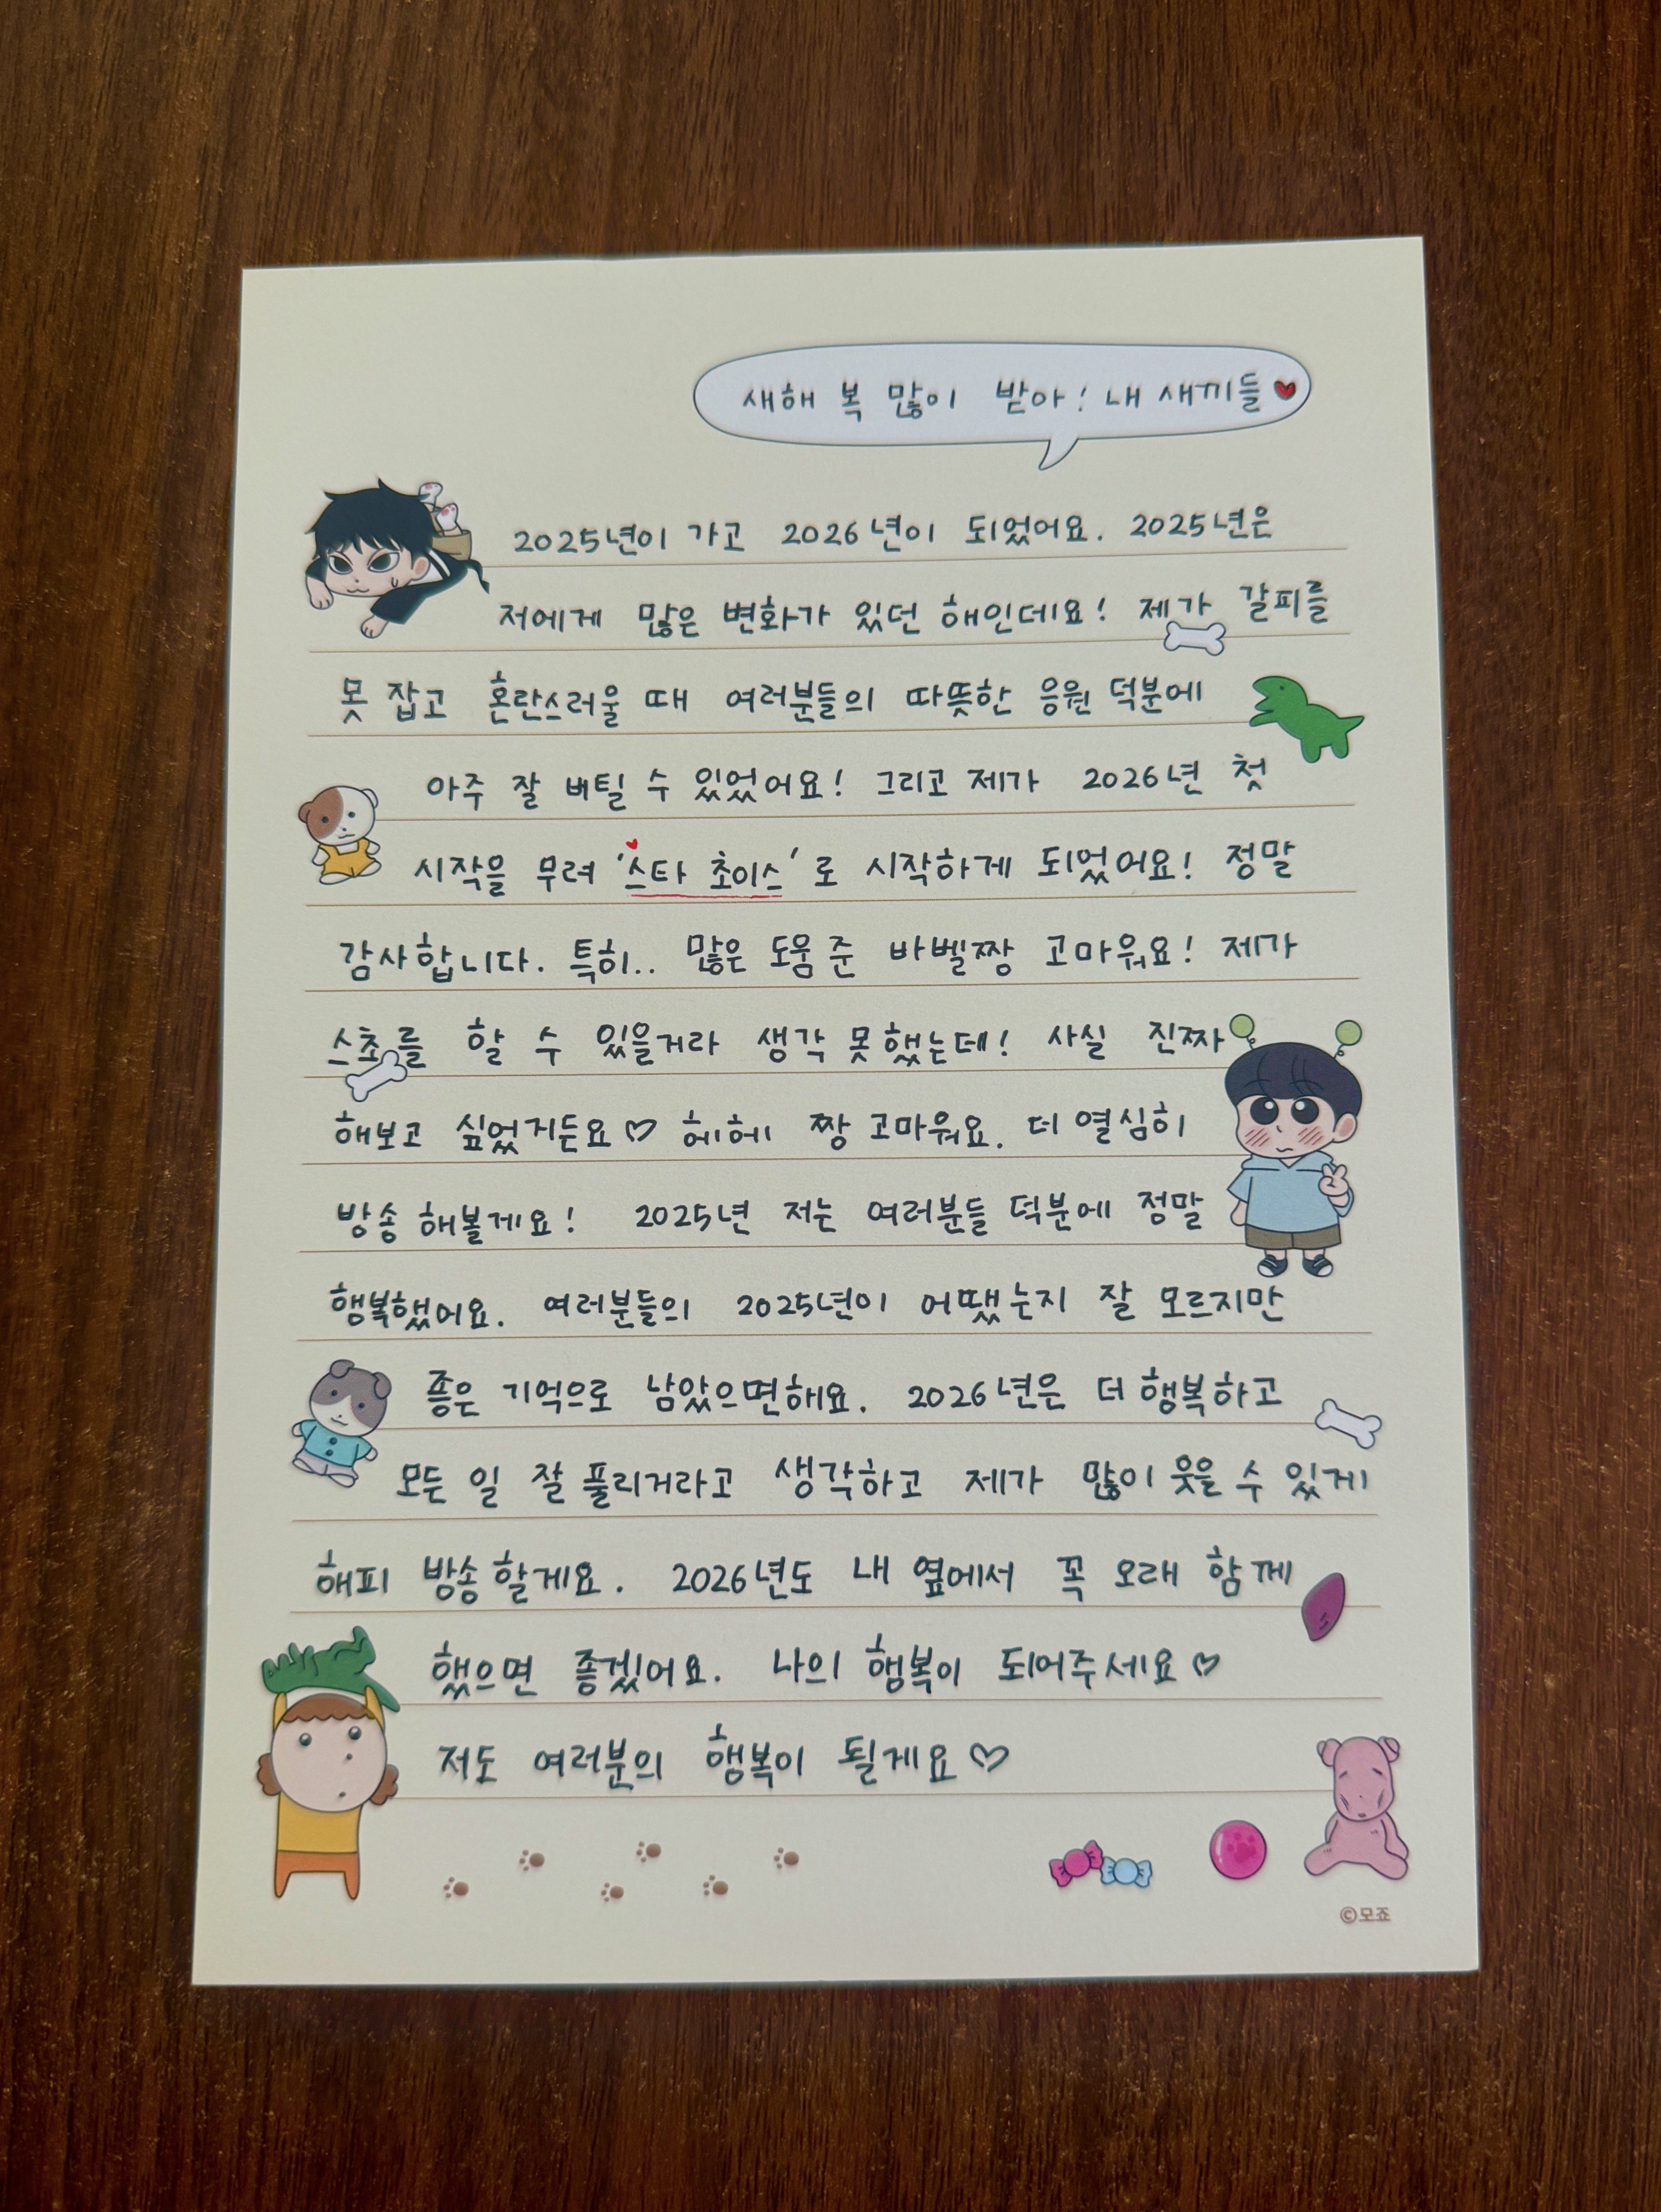 새해 복 많이 받아! 내 새끼들♥
2025년이 가고 2026년이 되었어요. 2025년은
저에게 많은 변화가 있던 해인데요! 제가 갈피를
못 잡고 혼란스러울 때 여러분들의 따뜻한 응원 덕분에
아주 잘 버틸 수 있었어요! 그리고 제가 2026년 첫
시작을 무려 '스타 초이스'로 시작하게 되었어요! 정말
감사합니다. 특히.. 많은 도움 준 바벨짱 고마워요! 제가
스초를 할 수 있을거라 생각 못했는데! 사실 진짜
해보고 싶었거든요♡ 헤헤 짱 고마워요. 더 열심히
방송 해볼게요! 2025년 저는 여러분들 덕분에 정말
행복했어요. 여러분들의 2025년이 어땠는지 잘 모르지만
좋은 기억으로 남았으면해요. 2026년은 더 행복하고
모든 일 잘 풀리거라고 생각하고 제가 많이 웃을 수 있게
해피 방송할게요. 2026년도 내 옆에서 꼭 오래 함께
했으면 좋겠어요. 나의 행복이 되어주세요♡
저도 여러분의 행복이 될게요♡
©모죠